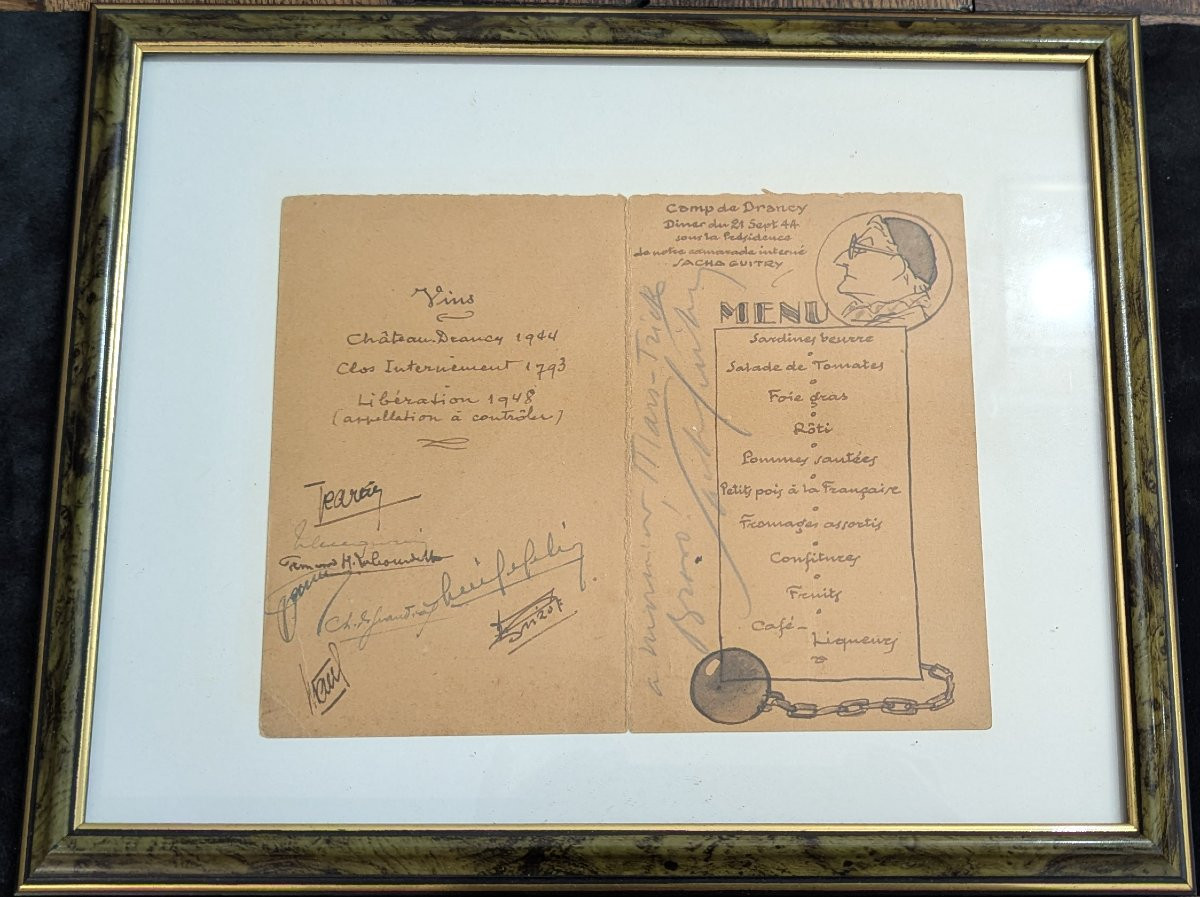 Vins
Château-Drancy 1944
Clos Internement 1793
Libération 1948
(appellation à contrôler)
Camp de Drancy
Diner du 21 Sept 44
sous la Présidence
de notre camarade interné
SACHA GUITRY
MENU
Sardines beurre
Salade de Tomates
Foie gras
Rôti
Pommes sautées
Petits pois à la Française
Fromages assortis
Confitures
Fruits
Café -
Liqueurs
a Mars-Trick
Bravo!
Sacha Guitry